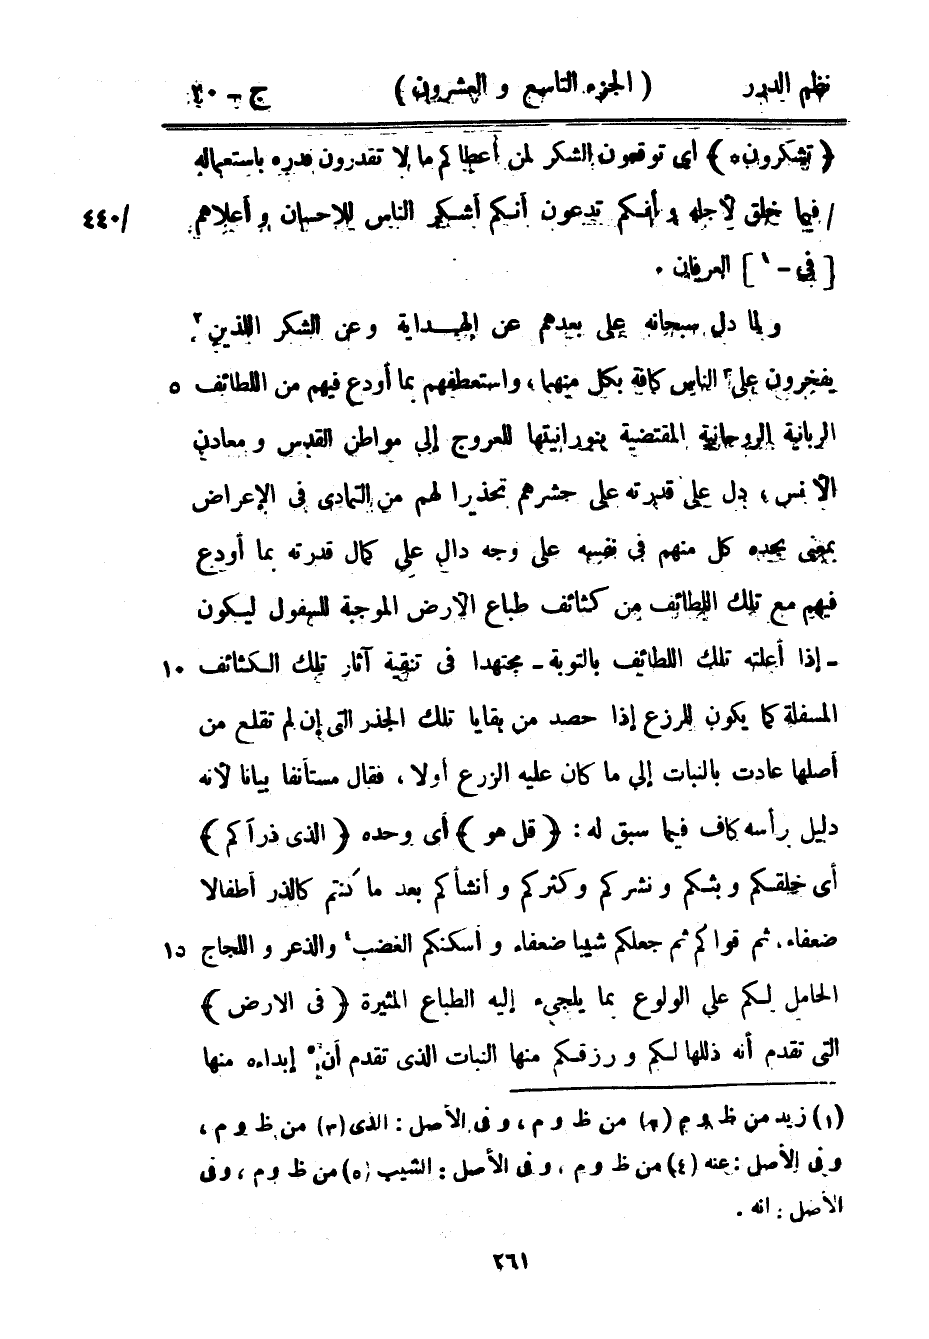 نظم الدرر ( الجزء التاسع و العشرون ) ج - ٢٠
﴿ تشكرون ه ﴾ أى توقعون الشكر لمن أعطاكم ما لا تقدرون قدره باستعماله
/ فيما خلق لأجله و أنكم تدعون أنكم أشكر الناس للاحسان و أعلاهم /٤٤٠
[ فى - ١ ] العرفان .
و لما دل سبحانه على بعدهم عن الهداية و عن الشكر اللذين ٢
يفخرون على ٣ الناس كافة بكل منهما ، واستعطفهم بما أودع فيهم من اللطائف ٥
الربانية الروحانية المقتضية بنورانيتها للعروج إلى مواطن القدس و معادن
الأنس ، دل على قدرته على حشرهم تحذيرا لهم من التمادى فى الإعراض
بمعنى يجده كل منهم فى نفسه على وجه دال على كمال قدرته بما أودع
فيهم مع تلك اللطائف من كثائف طباع الأرض الموجبة للسفول ليكون
- إذا أعلته تلك اللطائف بالتوبة - مجتهدا فى تنقية آثار تلك الكثائف ١٠
المسفلة كما يكون للرزع إذا حصد من بقايا تلك الجذر التى إن لم تقلع من
أصلها عادت بالنبات إلى ما كان عليه الزرع أولا ، فقال مستأنفا بيانا لأنه
دليل برأسه كاف فيما سبق له : ﴿ قل هو ﴾ أى وحده ﴿ الذى ذرأكم ﴾
أى خلقكم و بثكم و نشركم و كثركم و أنشأكم بعد ما كنتم كالذر أطفالا
ضعفاء ، ثم قواكم ثم جعلكم شيبا ضعفاء و أسكنكم الغضب ٤ والذعر و اللجاج ١٥
الحامل لكم على الولوع بما يلجىء إليه الطباع المثيرة ﴿ فى الارض ﴾
التى تقدم أنه ذللها لكم و رزقكم منها النبات الذى تقدم أن ٥ إبداءه منها
(١) زيد من ظ و م (٢) من ظ و م ، و فى الأصل : الذى (٣) من ظ و م ،
و فى الأصل : عنه (٤) من ظ و م ، و فى الأصل : الشيب (٥) من ظ و م ، و فى
الأصل : انه .
٢٦١